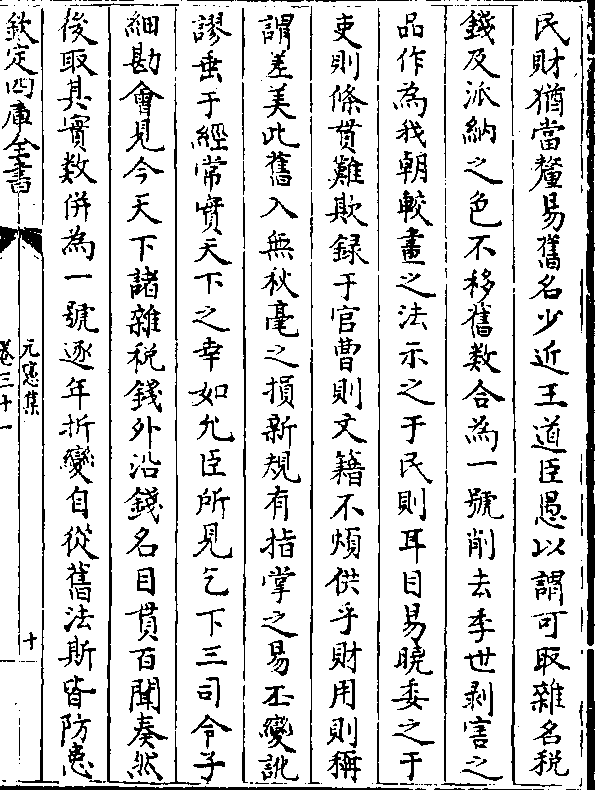 民財猶當釐易舊名少近王道臣愚以謂可取雜名税
錢及派納之色不移舊數合為一號削去季世剥害之
品作為我朝較畫之法示之于民則耳目易曉委之于
吏則條貫難欺録于官曹則文籍不煩供乎財用則稱
謂差美比舊入無秋毫之損新規有指掌之易丕變訛
謬垂于經常實天下之幸如允臣所見乞下三司令子
細勘會見今天下諸雜税錢外沿錢名目貫百聞奏然
後取其實數併為一號逐年折變自從舊法斯皆防患
欽定四庫全書
元憲集
卷三十一
十